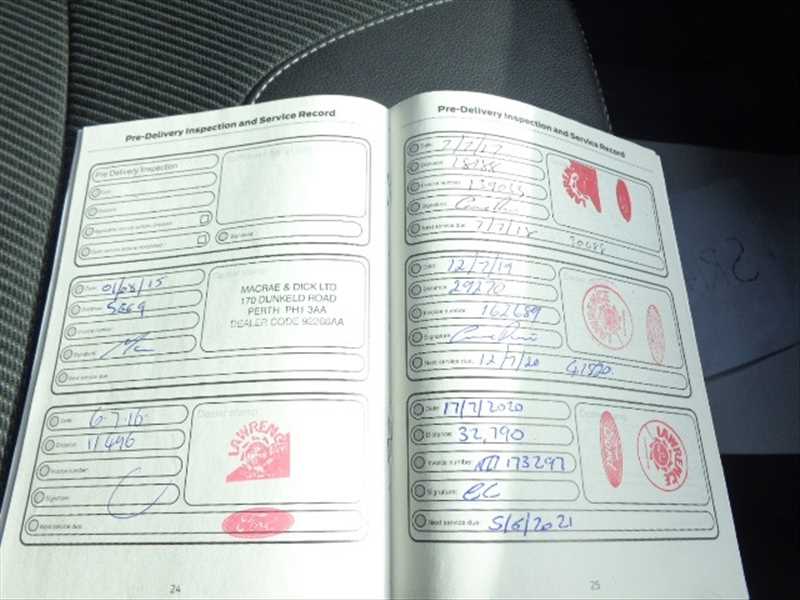 Pre-Delivery Inspection and Service Record
Pre Delivery Inspection
Date:
Signature
Date: 01/08/15
Distance: 5669
Invoice number:
Signature:
Next service due:
MACRAE & DICK LTD
170 DUNKELD ROAD
PERTH. PH1 3AA
DEALER CODE 92266AA
Date: 6.7.16.
Distance: 11,496
Invoice number:
Signature:
Next service due:
Dealer stamp
LAWRENCE
Ford
24
Pre-Delivery Inspection and Service Record
Date: 7/7/17
Distance: 18188
Invoice number:
Signature:
Next service due: 7/7/18
Date: 12/7/19
Distance: 29270
Invoice number: 162689
Signature:
Next service due: 12/7/20
Date: 17/7/2020
Distance: 32,790
Invoice number: 173297
Signature:
Next service due: 5/6/2021
Ford
LAWRENCE
25